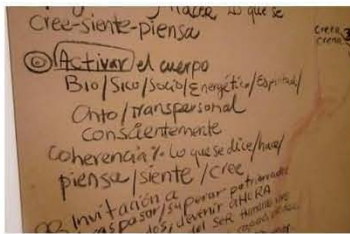 hacer lo que se
cree-siente-piensa
Activar el cuerpo
Bio/Sico/Socio/Energético/Espiritual/
Onto/transpersonal
conscientemente
coherencia % lo que se dice/hace/
piensa/siente/cree
Invitación a
traspasar/superar
devenir AHORA
del SER